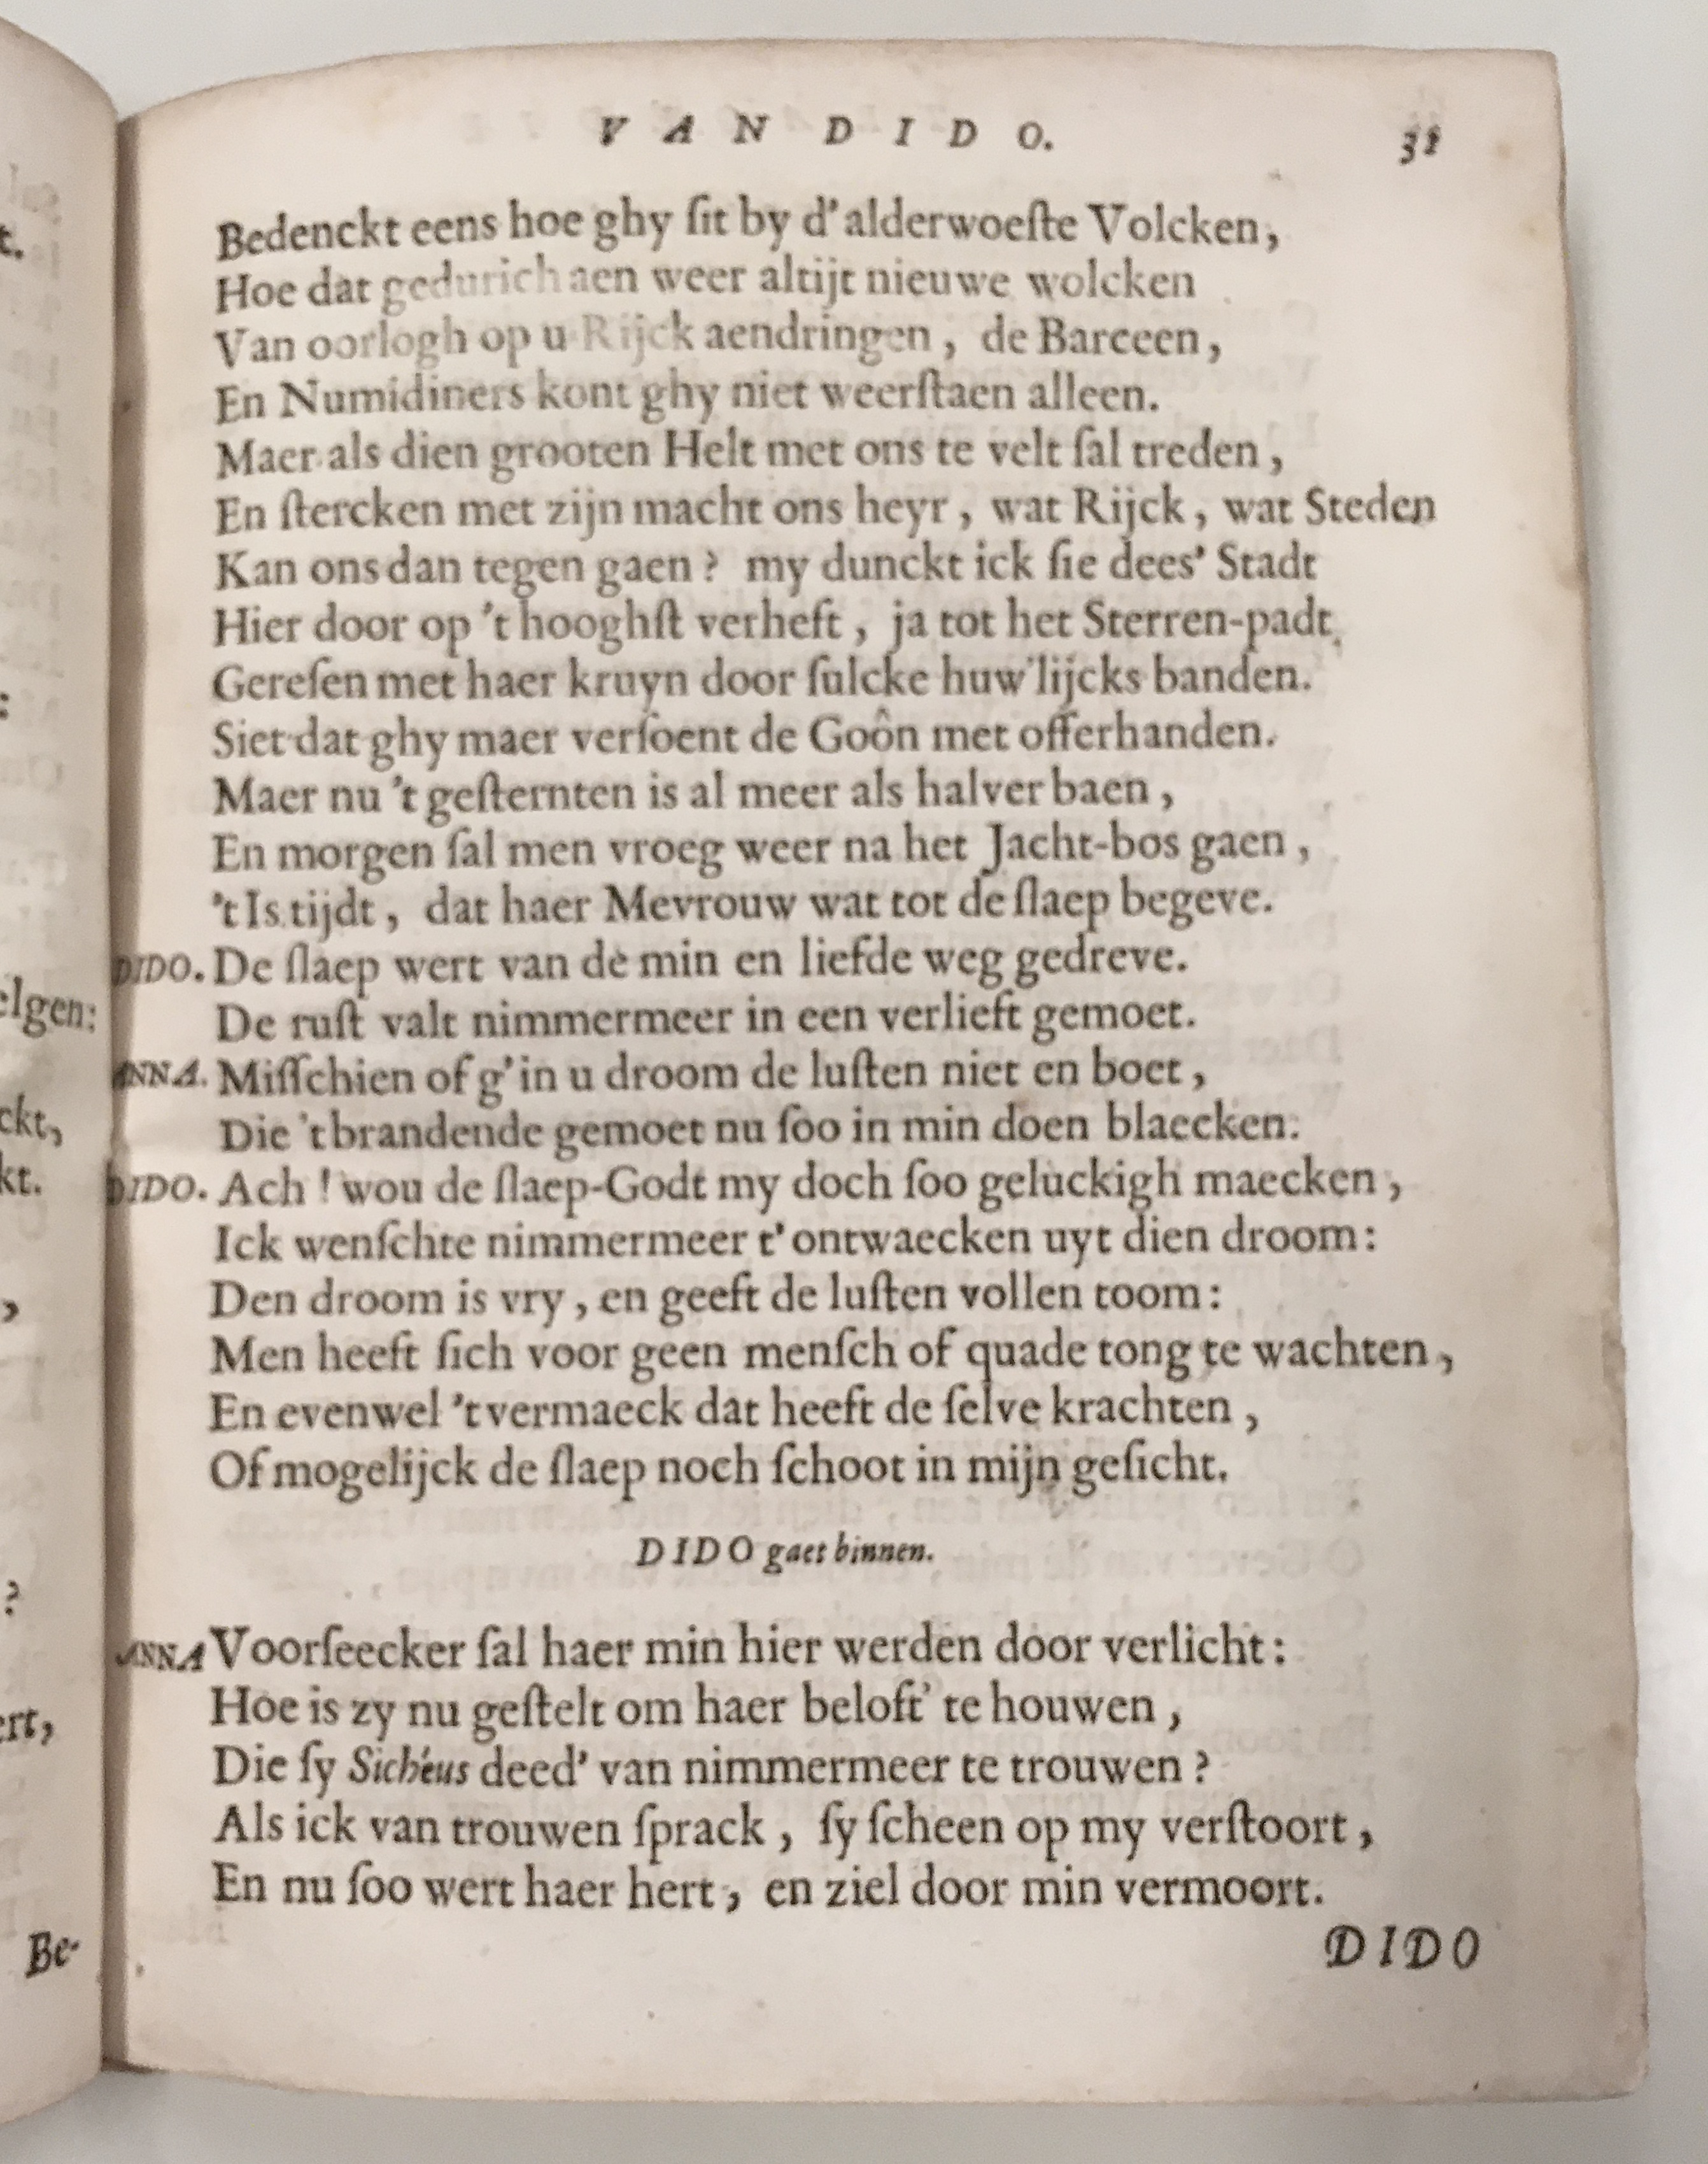 VAN DIDO. 31
Bedenckt eens hoe ghy ſit by d'alderwoeſte Volcken,
Hoe dat gedurich aen weer altijt nieuwe wolcken
Van oorlogh op u Rijck aendringen, de Barceen,
En Numidiners kont ghy niet weerſtaen alleen.
Maer als dien grooten Helt met ons te velt ſal treden,
En ſtercken met zijn macht ons heyr, wat Rijck, wat Steden
Kan ons dan tegen gaen? my dunckt ick ſie dees' Stadt
Hier door op 't hooghſt verheft, ja tot het Sterren-padt,
Gereſen met haer kruyn door ſulcke huw'lijcks banden.
Siet dat ghy maer verſoent de Goôn met offerhanden.
Maer nu 't geſternten is al meer als halver baen,
En morgen ſal men vroeg weer na het Jacht-bos gaen,
't Is tijdt, dat haer Mevrouw wat tot de ſlaep begeve.
DIDO. De ſlaep wert van de min en liefde weg gedreve.
De ruſt valt nimmermeer in een verlieft gemoet.
ANNA. Miſſchien of g'in u droom de luſten niet en boet,
Die 't brandende gemoet nu ſoo in min doen blaecken.
DIDO. Ach! wou de ſlaep-Godt my doch ſoo geluckigh maecken,
Ick wenſchte nimmermeer t'ontwaecken uyt dien droom:
Den droom is vry, en geeft de luſten vollen toom:
Men heeft ſich voor geen menſch of quade tong te wachten,
En evenwel 't vermaeck dat heeft de ſelve krachten,
Of mogelijck de ſlaep noch ſchoot in mijn geſicht.
DIDO gaet binnen.
ANNA Voorſeecker ſal haer min hier werden door verlicht:
Hoe is zy nu geſtelt om haer beloft' te houwen,
Die ſy Sichéus deed' van nimmermeer te trouwen?
Als ick van trouwen ſprack, ſy ſcheen op my verſtoort,
En nu ſoo wert haer hert, en ziel door min vermoort.
DIDO
t.
:
elgen:
ckt,
kt.
,
?
ert,
Be-